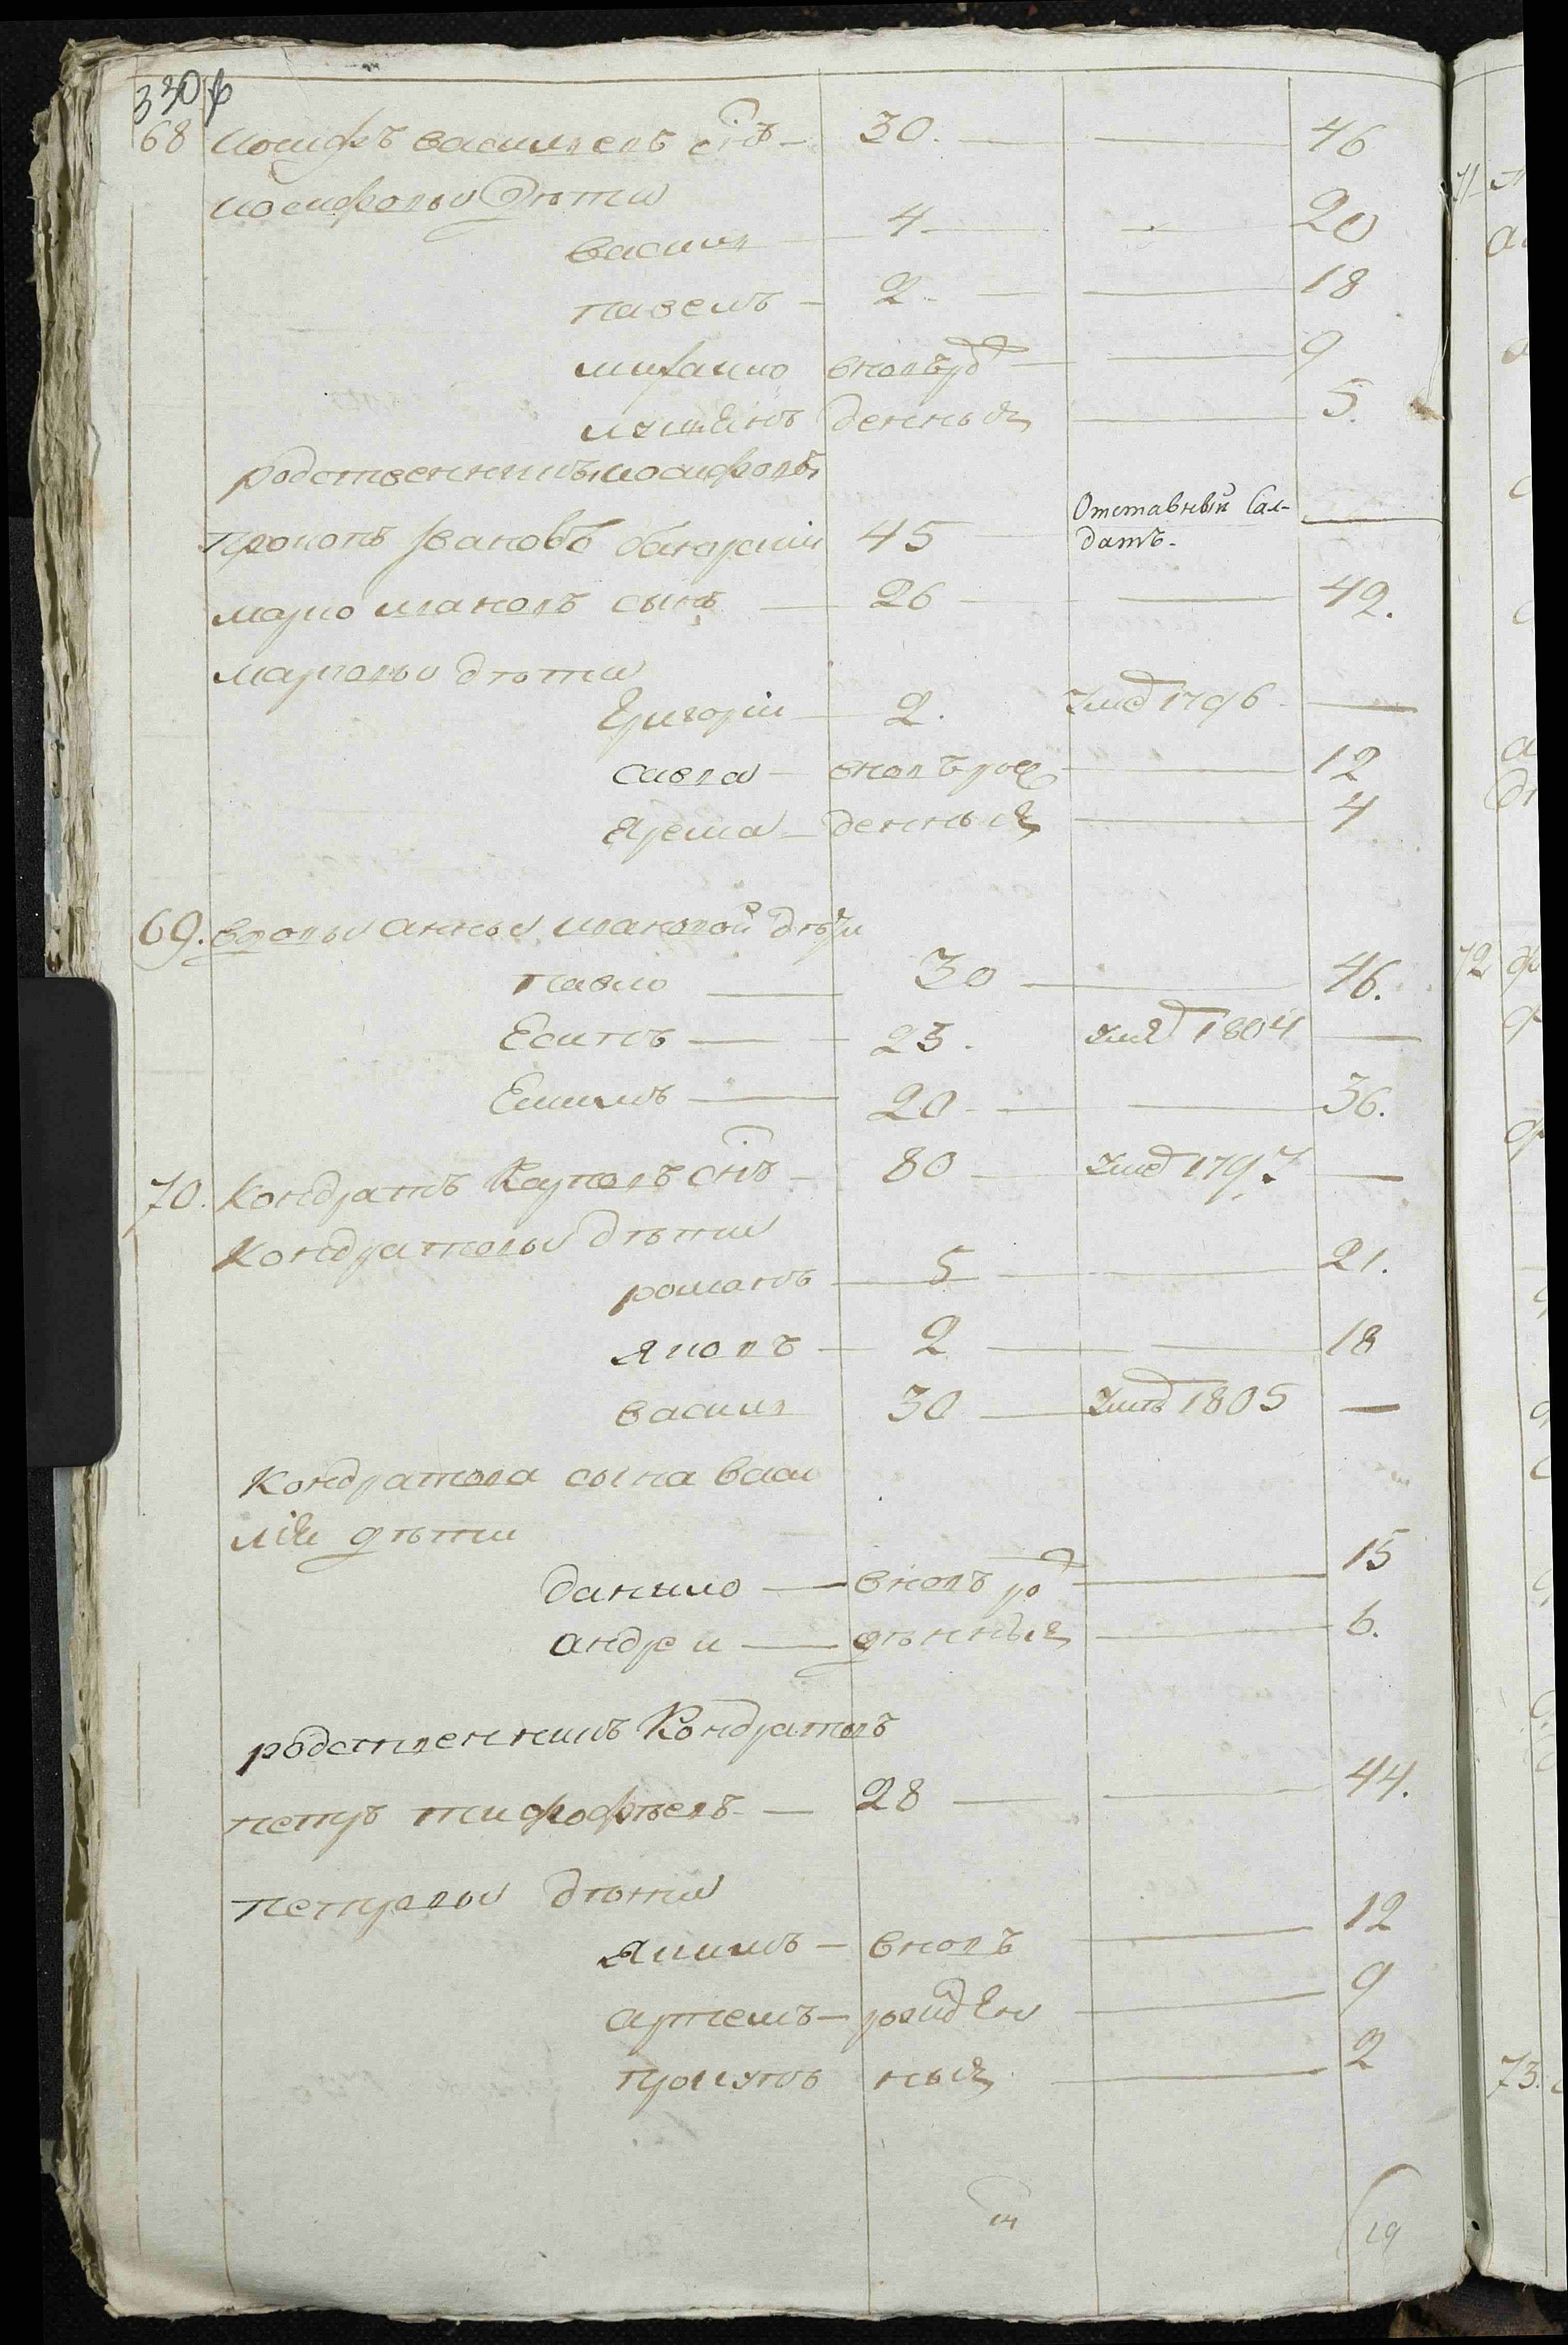 330
68 иосифъ василевъ снъ 30. 46
иосифовы дѣти
васил 4 20
павелъ 2 18
михаило вновьрд 9
денныя 5.
родственникъ иосифовъ
прокопъ Ивановъ 45 Отставный Сал-
датъ.
марко ивановъ сынъ 26 42.
марковы дѣти
Григорій 2. умед 1796
савва вновъ рож 12
Ярема денныя 4
69. вдовы анны ивановой дѣти
павло 30 46.
Есипъ 23. умед 1804
Екимъ 20 36.
70. Кондратъ Карповъ снъ 80 умед 1797
Кондратовы дѣти
романъ 5 21.
Яковъ 2 18
васил 30 умѣ 1805
Кондратова сына васи
лія дѣти
данило вновъ ро 15
андре и дѣнныя 6.
родственникъ Кондратовъ
петръ тимофѣевъ 28 44.
петровы дѣти
Якимъ вновъ 12
артемъ рожден 9
прокупъ ныя 2
14 19
71
72
73.